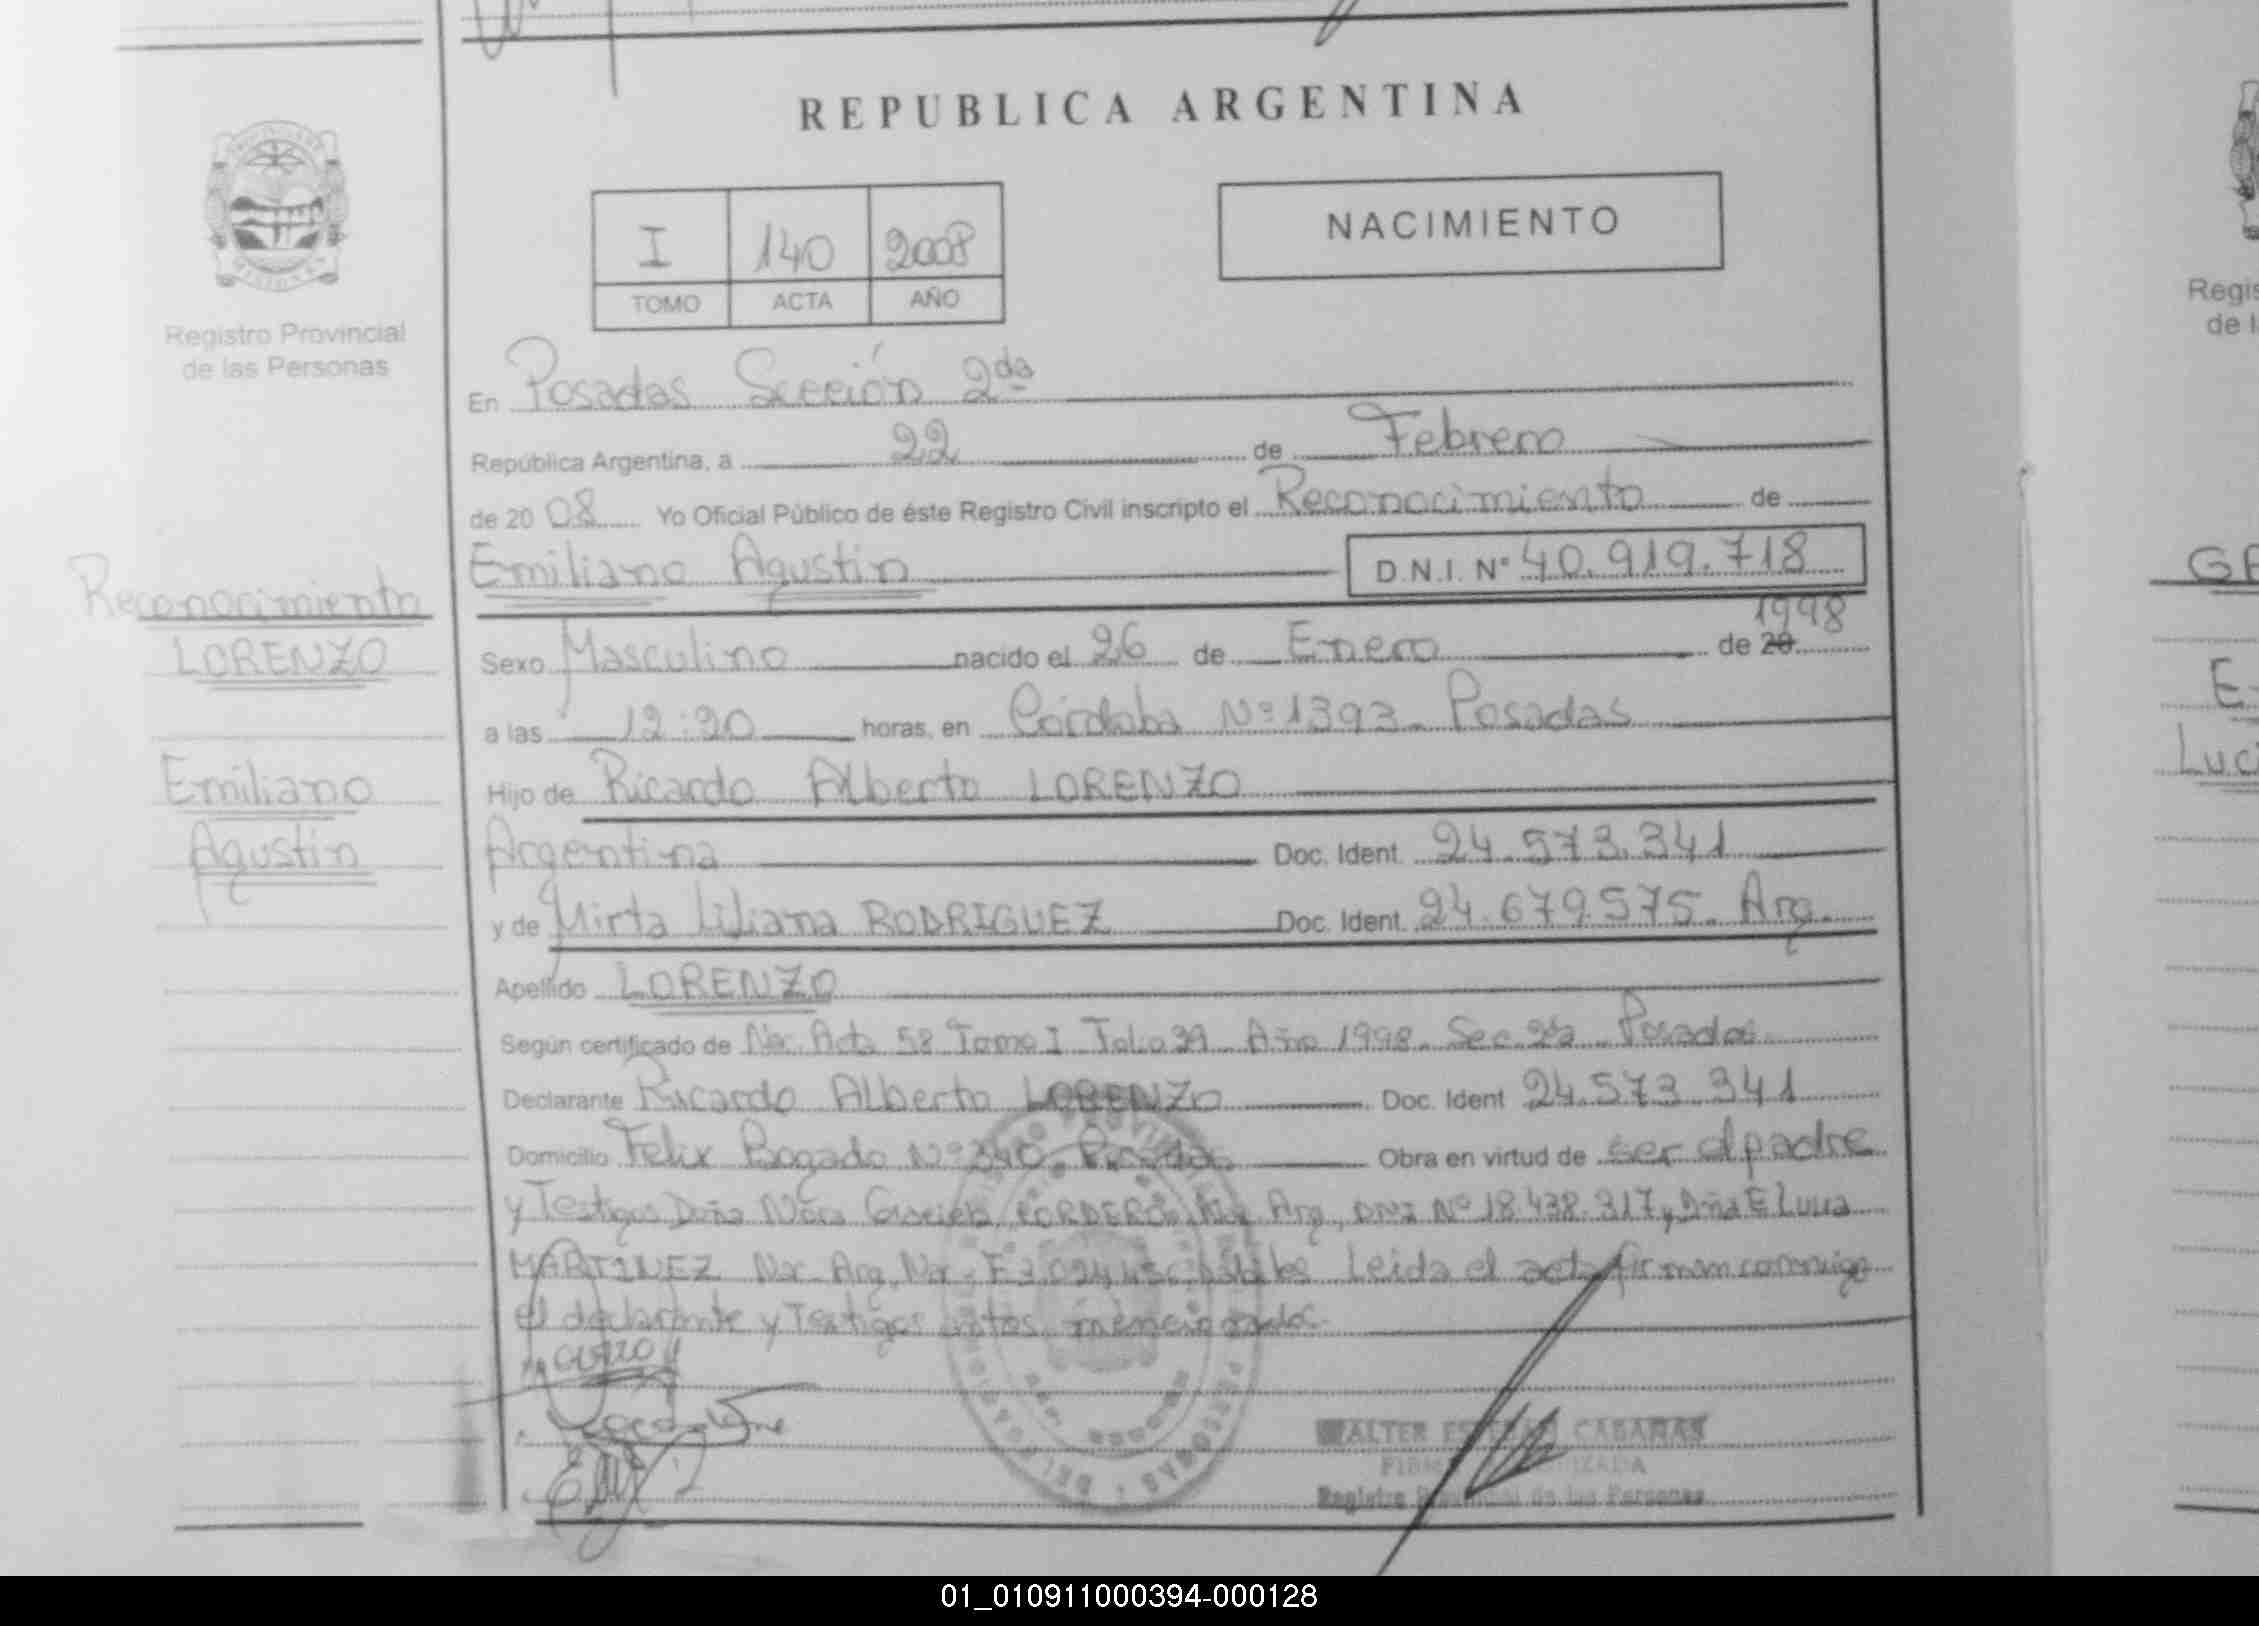 REPUBLICA ARGENTINA
NACIMIENTO
I 140 2008
TOMO ACTA AÑO
Registro Provincial
de las Personas
Reconocimiento
LORENZO
Emiliano
Agustin
En Posadas Sección 2da
República Argentina, a 22 de Febrero
de 20 08 Yo Oficial Público de éste Registro Civil inscripto el Reconocimiento de
Emiliano Agustin D.N.I. Nº 40.919.718
1998
Sexo Masculino nacido el 26 de Enero de 20
a las 12:20 horas, en Córdoba Nº 1393 - Posadas
Hijo de Ricardo Alberto LORENZO
Argentina Doc. Ident. 24.573.341
y de Mirta Liliana RODRIGUEZ Doc. Ident. 24.679.575. Arg.
Apellido LORENZO
Según certificado de Nac. Acta 58 Tomo I Folio 39 Año 1998. Sec. 2da Posadas
Declarante Ricardo Alberto LORENZO Doc. Ident 24.573.341
Domicilio Felix Bogado Nº 340, Posadas Obra en virtud de ser el padre
y Testigos Doña Nora Graciela CORDERO, Arg, DNI Nº 18.438.317, Doña Elvira
MARTINEZ Nac. Arg. Leida el acta firman conmigo
el declarante y Testigos antes mencionados.
WALTER CABAÑAS
Registro Provincial de las Personas
Regis
de l
Luci
01_010911000394-000128